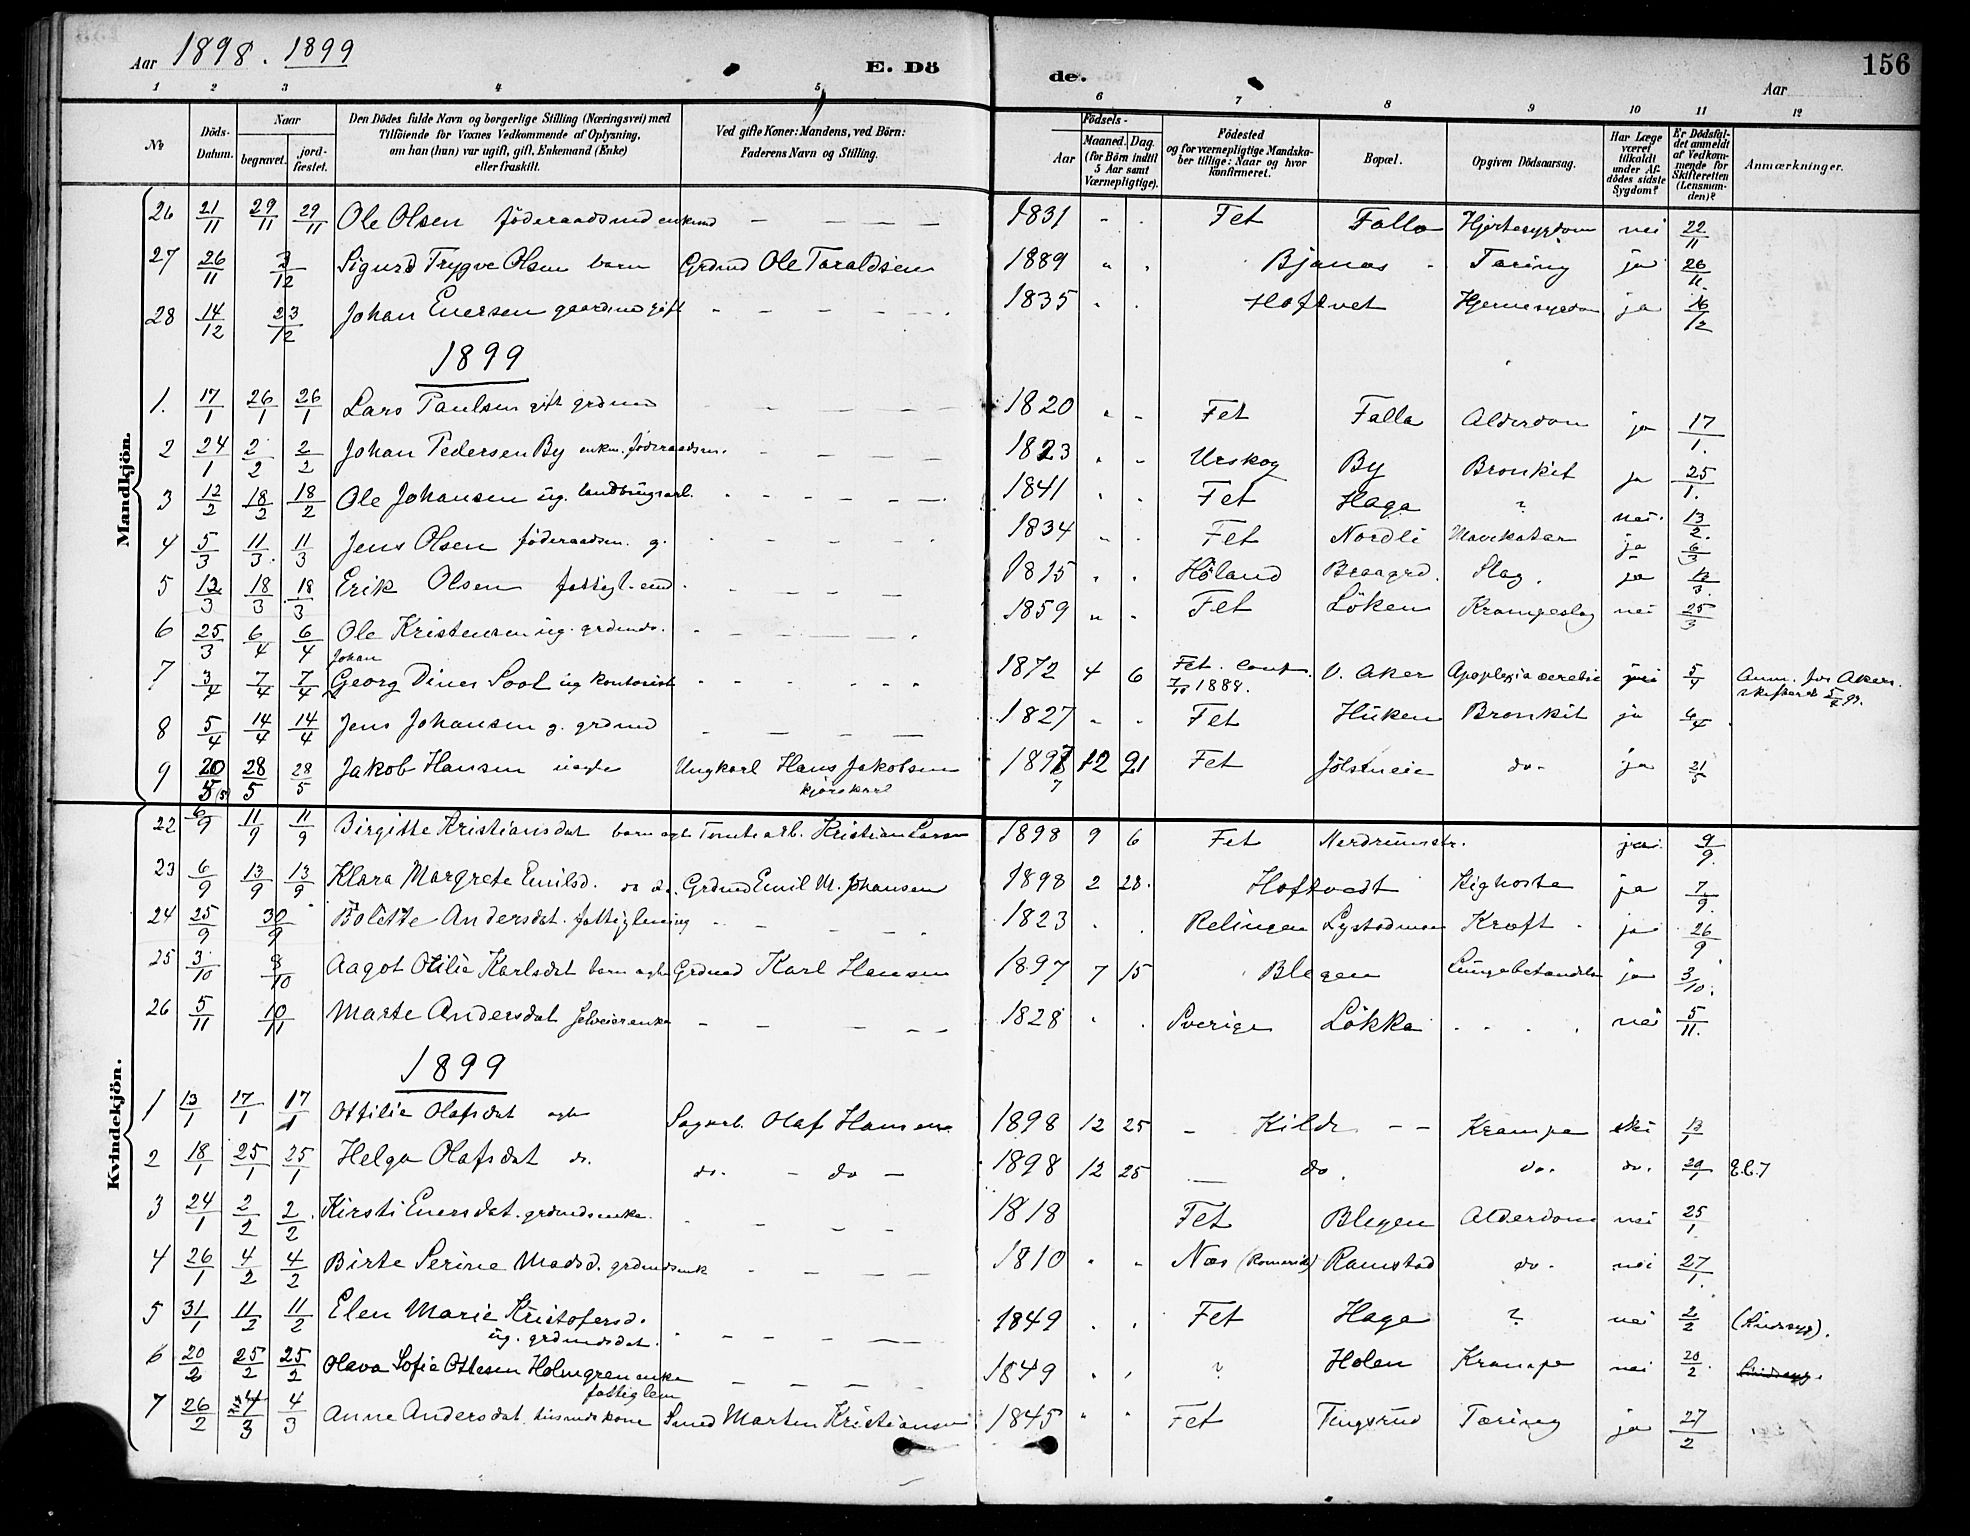 Aar 1898. 1899 E. Dö de. Aar 156
1 2 3 4 5 6 7 8 9 10 11 12
No Döds-Datum. Naar begravet. jordfæstet. Den Dödes fulde Navn og borgerlige Stilling (Næringsvei) med Tilföiende for Voxnes Vedkommende af Oplysning, om han (hun) var ugift, gift, Enkemand (Enke) eller fraskilt. Ved gifte Koner: Mandens, ved Börn: Faderens Navn og Stilling. Födsels- Aar Maaned. Dag. (for Börn indtil 5 Aar samt Værnepligtige). Födested og for værnepligtige Mandskaber tillige: Naar og hvor konfirmeret. Bopæl. Opgiven Dödsaarsag. Har Læge været tilkaldt under Afdödes sidste Sygdom? Er Dödsfaldet anmeldt af Vedkommende for Skifteretten (Lensmanden)? Anmærkninger.
Mandkjön.
26 21/11 29/11 29/11 Ole Olsen föderaadsmd enkmd – – – – 1831 " . Fet Falla Hjertesygdom nei 22/11
27 26/11 3/12 Sigurd Trygve Olsen barn Grdmd Ole Taraldsen 1889 " . Bjanas Tæring ja 26/11.
28 14/12 23/12 Johan Enersen gaardmd gift – – – – – 1835 . . Hoftvet Hjernesygdom ja 16/12
1899
1. 17/1 26/1 26/1 Lars Paulsen gift grdmd – – – – – 1820 . – Fet Falla Alderdom ja 17/1.
2 24/1 2/2 2/2 Johan Pedersen By enkm. föderaadsm. – – – – 1823 . – Urskog By Bronkit ja 25/1.
3 12/2 18/2 18/2 Ole Johansen ug. landbrugsarb. – – – – – 1841 . . Fet Haga ? nei. 13/2.
4 5/3 11/3. 11/3 Jens Olsen föderaadsm. g. – – – – – 1834 . . Fet Nordli Mavekatar ja 6/3
5 13/3 18/3 18/3 Erik Olsen fattigl. . – – – – 1815 . . Höland Braagrd. Slag. ja 13/3.
6 25/3 6/4 6/4 Ole Kristensen ug. – – – – – 1859 " . Fet Löken Krampeslag nei 25/3
7 3/4 7/4 7/4 Johan Georg Dines Soot ug kontorist – – – – – 1872 4 6 Fet. Conf. 1888. V. Aker Apoplexia cerebri 5/4 Anm. for Akers. skifteret 5/4 99.
8 5/4 14/4 14/4 Jens Johansen g. grdmd – – – – 1827 " . Fet Huken Bronkit ja 6/4
9 20/5 28/5 28/5 Jakob Hansen uægte Ungkarl Hans Jakobsen kjörekarl 1897 12 21 Fet do. ja 21/5
Kvindekjön.
22 6/9 11/9 11/9 Birgitte Kristiansdat barn ægte Tomtearb. Kristian Larsen 1898 9 6 Fet Nerdrumstr. ja. 9/9.
23 6/9 13/9 13/9 Klara Margrete Emilsd. do do. Grdmd Emil M. Johansen 1898 2 28. Hoftvedt Kighoste ja 7/9.
24 25/9 30/9 Bolette Andersdat. fattiglem ug – – – – 1823 . . Relingen Kræft . ja 26/9
25 3/10 8/10 Aagot Otilie Karlsdat barn ægte Grdmd Karl Hansen 1897 7 15 Blegen Lungebetændelse ja 3/10.
26 5/11 10/11 Marte Andersdat Selveierenke – – – – – 1828 . . Sverige Lökka . . . . nei 5/11.
1899
1 13/1 17/1 17/1 Ottilie Olafsdat ægte Sagarb. Olaf Hansen 1898 12 25 – Kilde – – Krampe 13/1
2 18/1 25/1 25/1 Helga Olafsdat do. do. – do – 1898 12 25 – do. do. do. 20/1
3 24/1 2/2 2/2 Kirsti Enersdat. grdmdsenke. – – – – 1818 Fet Blegen Alderdom nei 25/1.
4 26/1 4/2 4/2 Birte Serine Madsd. grdmdsenk – – – – 1810 . . Næs (Romerike) Ramstad do. nei 27/1.
5 31/1 11/2 11/2 Elen Marie Kristofersd. ug. grdmdsdat. – – – – 1849 . . Fet Haga ? nei 2/2 (Sindssyg).
6 20/2 25/2 25/2 Olava Sofie Ottesen Holmgren enke fattiglem – – – – 1849 . . ? Holen Krampe nei 20/2.
7 26/2 4/3 4/3 Anne Andersdat. husmdskone Smed Martin Kristiansen 1845 " " Fet Tingsrud Tæring ja 27/2